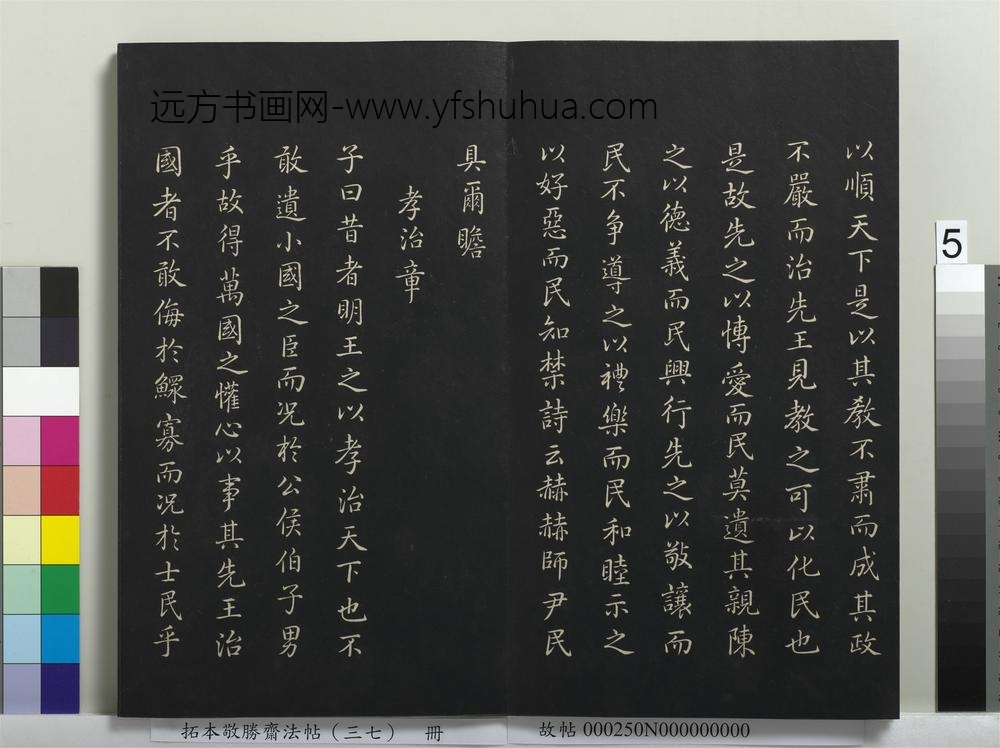 远方书画网-www.yfshuhua.com
以順天下是以其教不肅而成其政
不嚴而治先王見教之可以化民也
是故先之以博愛而民莫遺其親陳
之以德義而民興行先之以敬讓而
民不争導之以禮樂而民和睦示之
以好惡而民知禁詩云赫赫師尹民
具爾瞻
孝治章
子曰昔者明王之以孝治天下也不
敢遺小國之臣而况於公侯伯子男
乎故得萬國之懽心以事其先王治
國者不敢侮於鰥寡而况於士民乎
5
拓本敬勝齋法帖（三七） 冊
故帖 000250N000000000